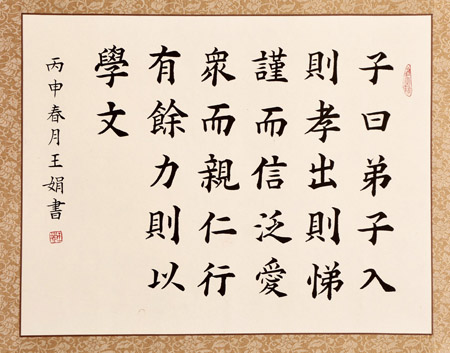 子曰弟子入
則孝出則悌
謹而信泛愛
衆而親仁行
有餘力則以
學文
丙申春月王娟書